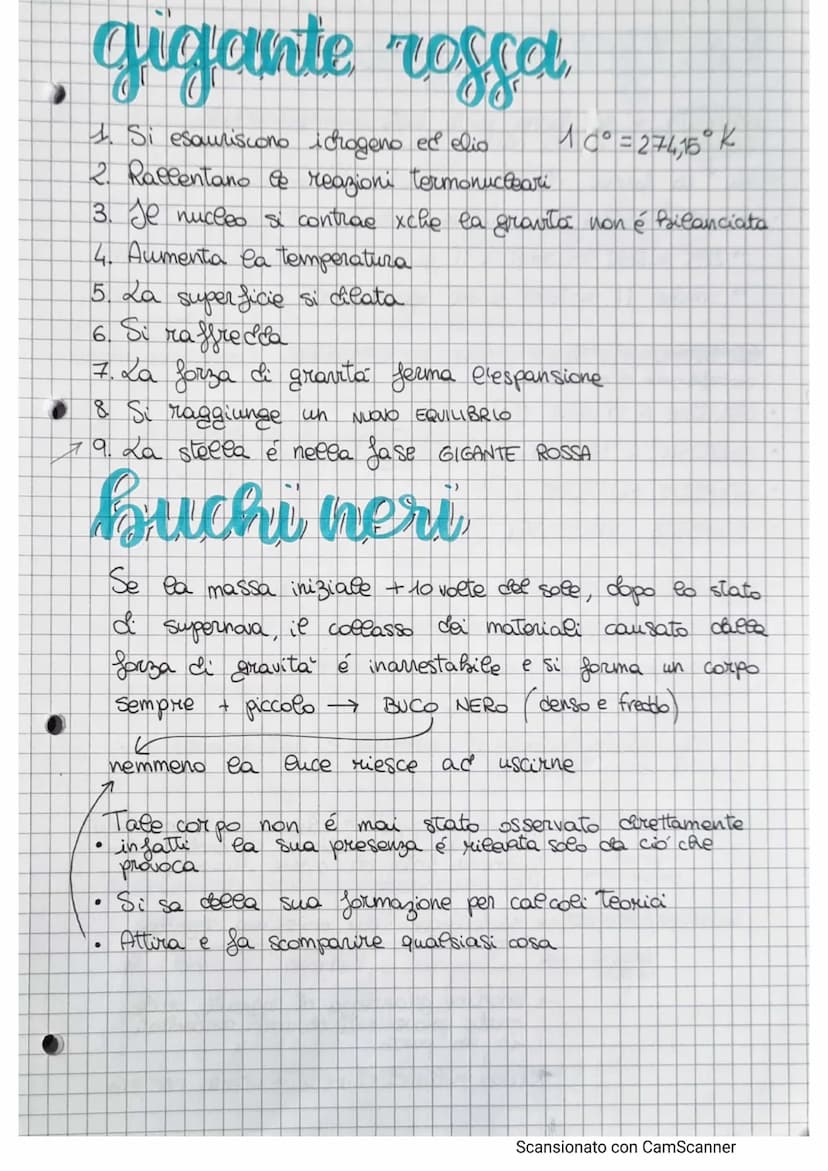 gigante rossa
1. Si esauriscono idrogeno ed elio 1 C° = 274,15° K
2. Rallentano le reazioni termonucleari
3. Il nucleo si contrae xche la gravitá non é bilanciata
4. Aumenta la temperatura
5. La superficie si dilata
6. Si raffredda
7. La forza di gravitá ferma l'espansione
8 Si raggiunge un NUOVO EQUILIBRIO
9. La stella é nella fase GIGANTE ROSSA
buchi neri
Se la massa iniziale + 10 volte del sole, dopo lo stato
di supernova, il collasso dei materiali causato dalla
forza di gravitá é inarrestabile e si forma un corpo
sempre + piccolo → BUCO NERO (denso e freddo)
nemmeno la luce riesce ad uscirne
Tale corpo non é mai stato osservato direttamente
• infatti la sua presenza é rilevata solo da ció che
provoca
• Si sa della sua formazione per calcoli teorici
• Attira e fa scomparire qualsiasi cosa
Scansionato con CamScanner